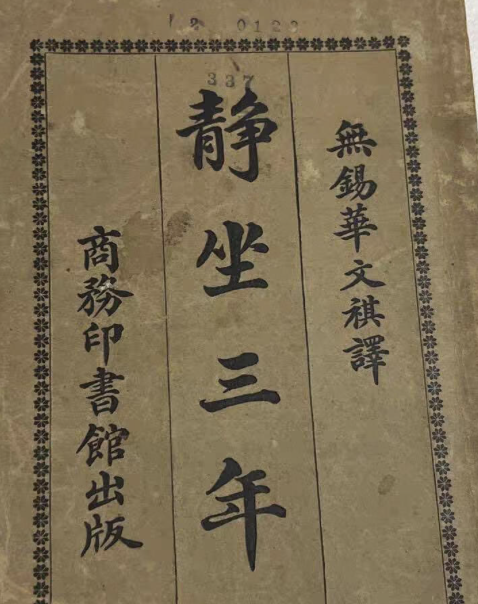 337
無錫華文祺譯
静坐三年
商務印書館出版